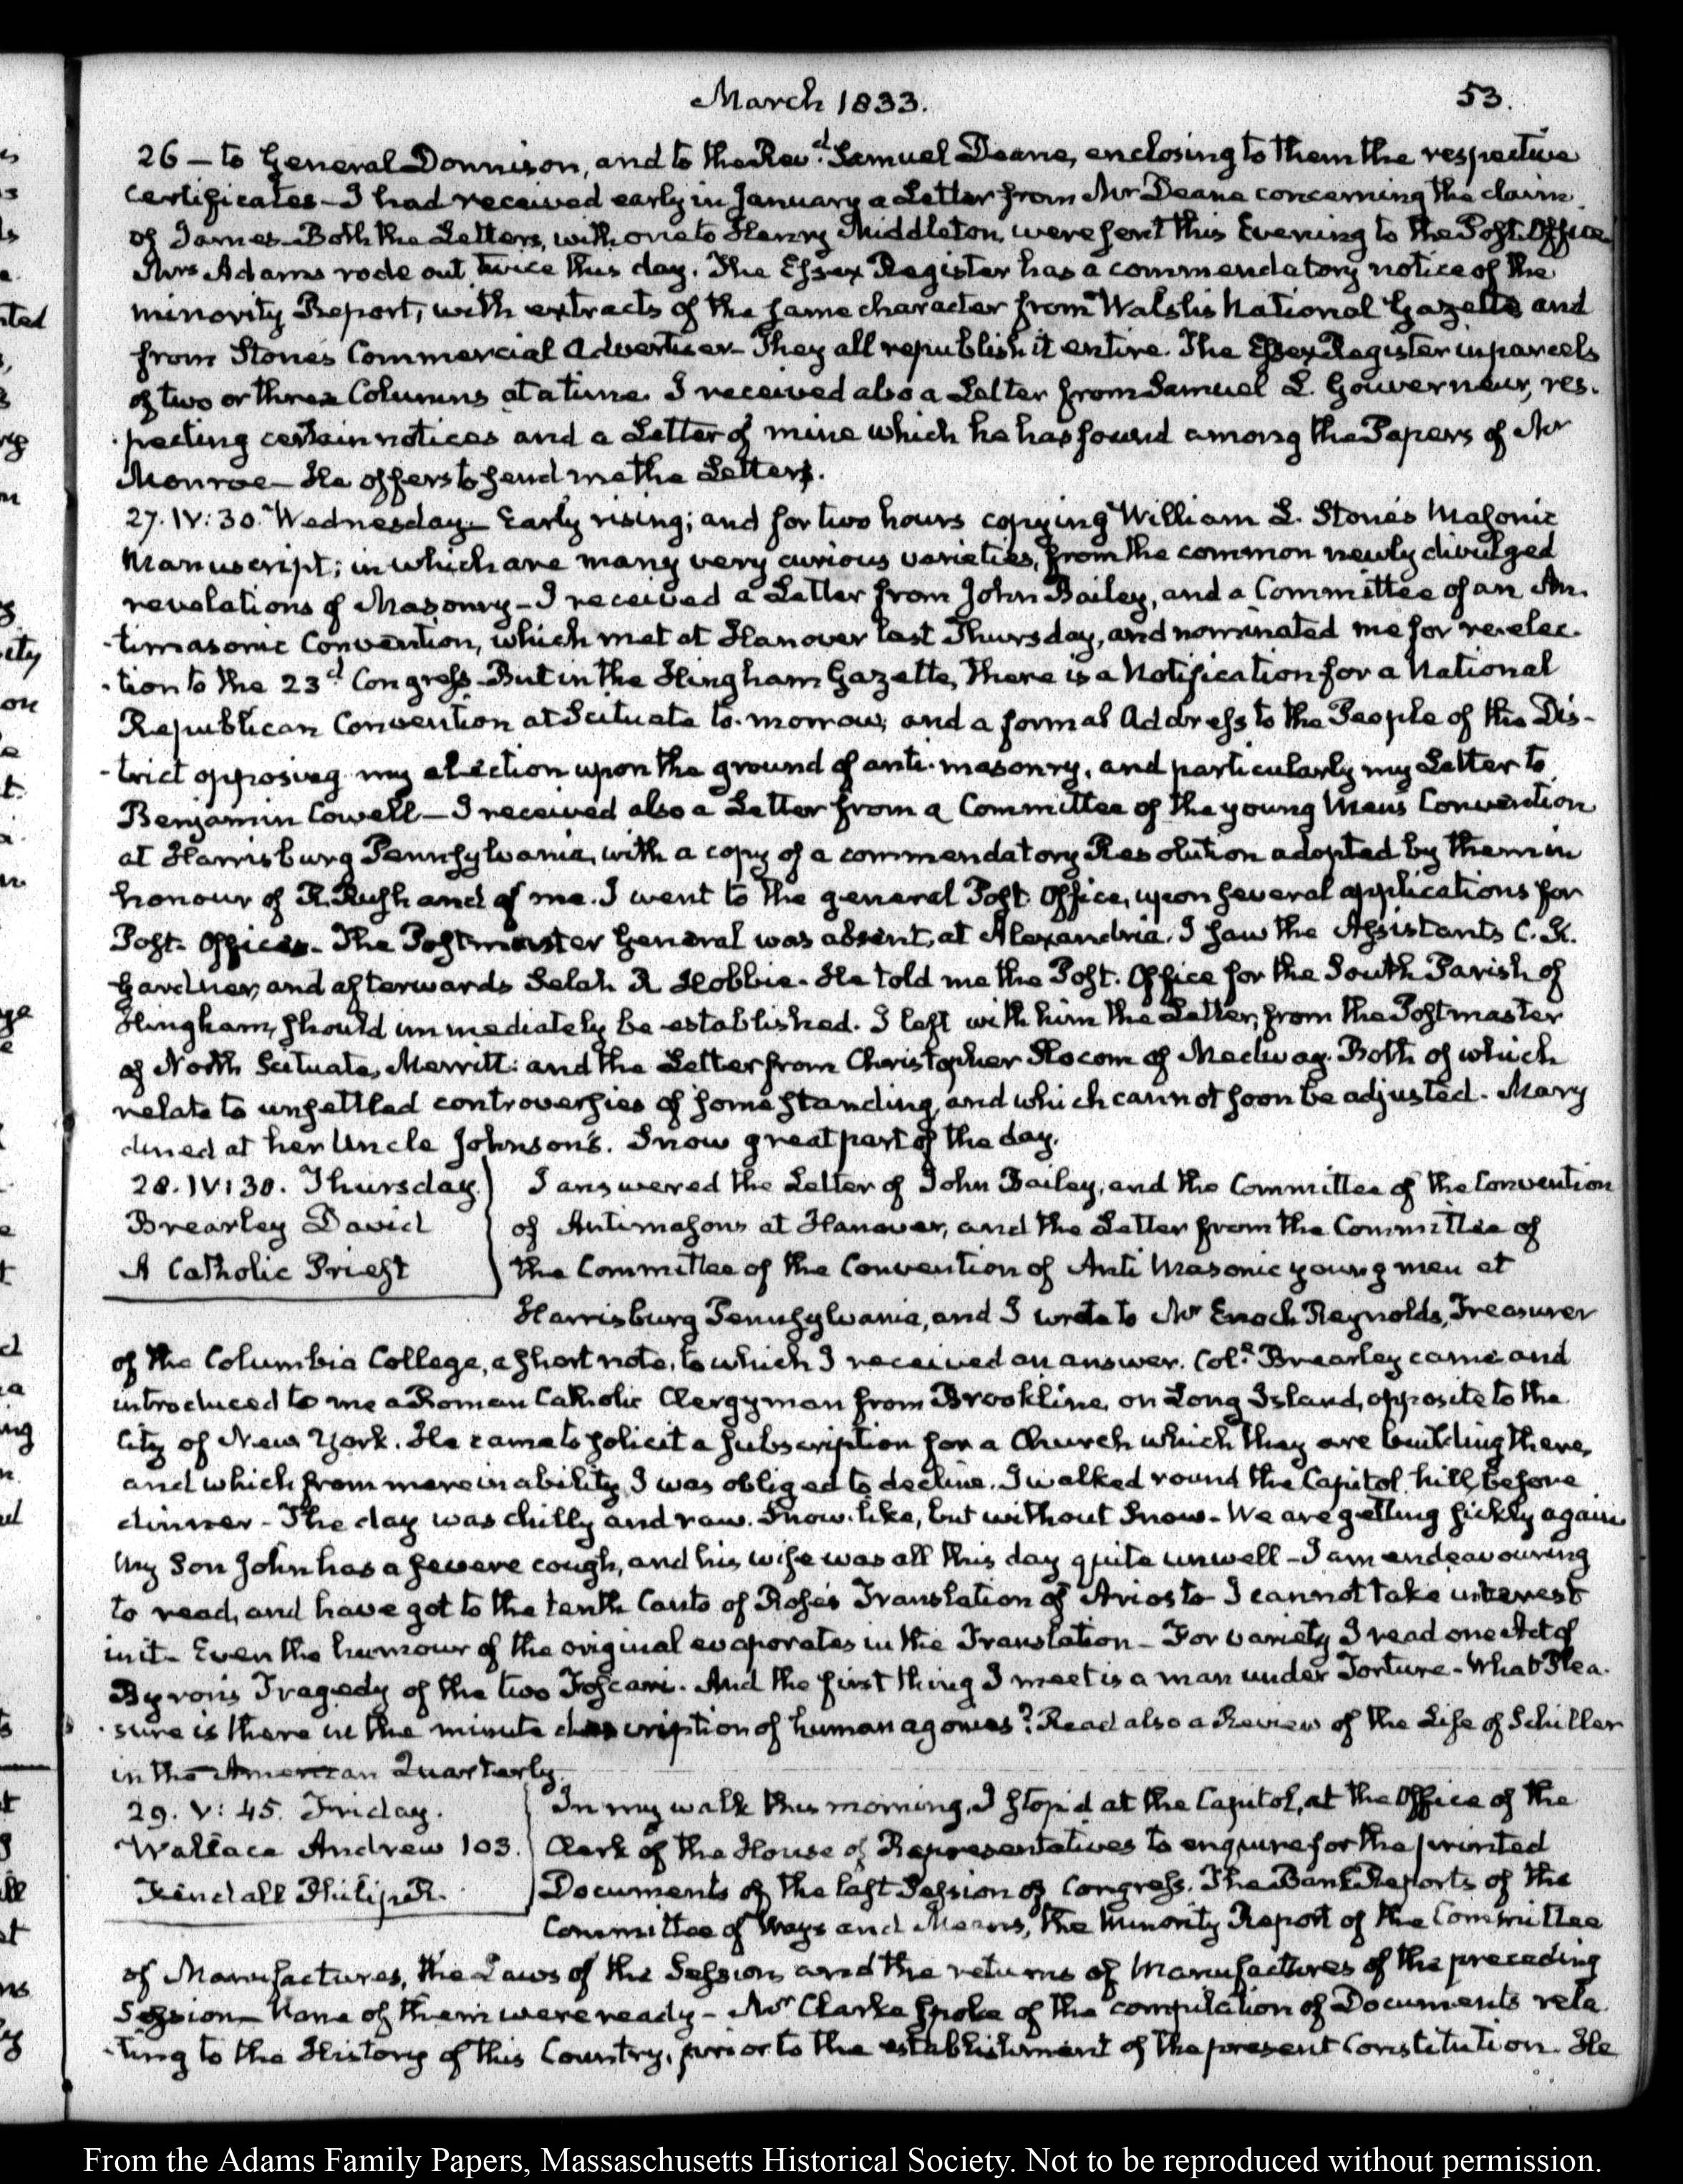 March 1833.
53.
26 — to General Donnison, and to the Revd. Samuel Deane, enclosing to them the respective
certificates — I had received early in January a Letter from Mr Deane concerning the claim
of James — Both the Letters, with one to Henry Middleton, were sent this Evening to the Post-Office.
Mrs Adams rode out twice this day. The Essex Register has a commendatory notice of the
minority Report, with extracts of the same character from Walsh's National Gazette and
from Stone's Commercial Advertiser — They all republish it entire. The Essex Register in parcels
of two or three Columns at a time. I received also a Letter from Samuel L. Gouverneur, res-
pecting certain notices and a Letter of mine which he has found among the Papers of Mr
Monroe — He offers to send me the Letters.
27. IV:30. Wednesday — Early rising; and for two hours copying William L. Stone's Masonic
Manuscript; in which are many very curious varieties, from the common newly divulged
revelations of Masonry — I received a Letter from John Bailey, and a Committee of an An-
timasonic Convention, which met at Hanover last Thursday, and nominated me for re-elec-
tion to the 23d Congress — But in the Hingham Gazette, there is a Notification for a National
Republican Convention at Scituate to-morrow, and a formal Address to the People of the Dis-
trict opposing my election upon the ground of anti-masonry, and particularly my Letter to
Benjamin Cowell — I received also a Letter from a Committee of the young Men's Convention
at Harrisburg Pennsylvania, with a copy of a commendatory Resolution adopted by them in
honour of R. Rush and of me. I went to the general Post Office, upon several applications for
Post-Offices — The Postmaster General was absent, at Alexandria. I saw the Assistants C. K.
Gardner, and afterwards Selah R Hobbie — He told me the Post-Office for the South Parish of
Hingham, should immediately be established. I left with him the Letter, from the Postmaster
of North Scituate, Merritt: and the Letter from Christopher Slocom of Medway. Both of which
relate to unsettled controversies of some standing, and which cannot soon be adjusted. Mary
dined at her Uncle Johnson's. Snow great part of the day.
28. IV:30. Thursday.
Brearley David
A Catholic Priest
I answered the Letter of John Bailey, and the Committee of the Convention
of Antimasons at Hanover, and the Letter from the Committee of
the Committee of the Convention of Anti Masonic young men at
Harrisburg Pennsylvania, and I wrote to Mr Enoch Reynolds, Treasurer
of the Columbia College, a short note, to which I received an answer. Coll. Brearley came and
introduced to me a Roman Catholic Clergyman from Brookline, on Long Island, opposite to the
City of New York. He came to solicit a subscription for a Church which they are building there,
and which from mere inability, I was obliged to decline. I walked round the Capitol hill, before
dinner — The day was chilly and raw. Snow-like, but without Snow — We are getting sickly again
My Son John has a severe cough, and his wife was all this day quite unwell — I am endeavouring
to read, and have got to the tenth Canto of Rose's Translation of Ariosto — I cannot take interest
in it — Even the humour of the original evaporates in the Translation — For variety I read one Act of
Byron's Tragedy of the two Foscari. And the first thing I meet is a man under Torture — What Plea-
sure is there in the minute description of human agonies? Read also a Review of the Life of Schiller
in the American Quarterly.
29. V:45. Friday.
Wallace Andrew 103.
Fendall Philip R.
In my walk this morning, I stop'd at the Capitol, at the Office of the
Clerk of the House of Representatives to enquire for the printed
Documents of the last Session of Congress. The Bank Reports of the
Committee of Ways and Means, the Minority Report of the Committee
of Manufactures, the Laws of the Session, and the returns of Manufactures of the preceding
Session — None of them were ready — Mr Clarke spoke of the compilation of Documents rela-
ting to the History of this Country, prior to the establishment of the present Constitution. He
From the Adams Family Papers, Massachusetts Historical Society. Not to be reproduced without permission.